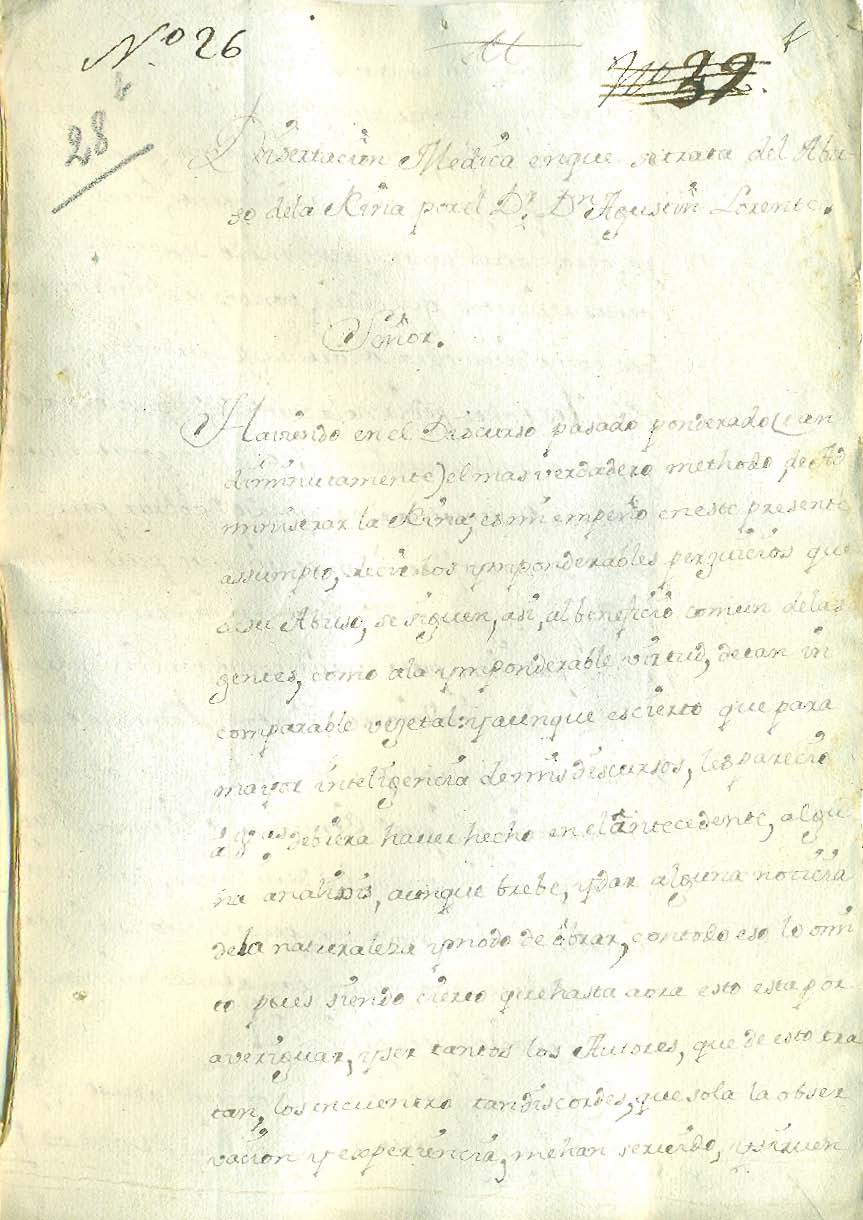 N.º 26
28
Disertacion Medica enque setrata del Abu-
so dela Kina por el Dr. Dn Agustin Lorente.
Señor.
Haviendo en el Discurso pasado ponderado (aun
diminutamente) el mas verdadero methodo, de Ad
ministrar la Kina; es mi empeño en este presente
assumpto, decir los ymponderables perjuicios que
desu Abuso, se siguen, asi, al beneficio comun delas
gentes, como ala ymponderable virtud, de tan in
comparable vegetal: y aunque es cierto que para
mayor inteligencia de mis discursos, les parecio
debiera haver hecho en el antecedente, algu
na analisis, aunque brebe, y dar alguna noticia
de la naturaleza y modo de obrar, contodo eso lo omi
to pues siendo cierto que hasta aora esto esta por
averiguar, y ser tantos los Autores, que de esto tra
tan, los encuentro tan discordes, que sola la obser
vacion y experiencia, me han servido, y sirven